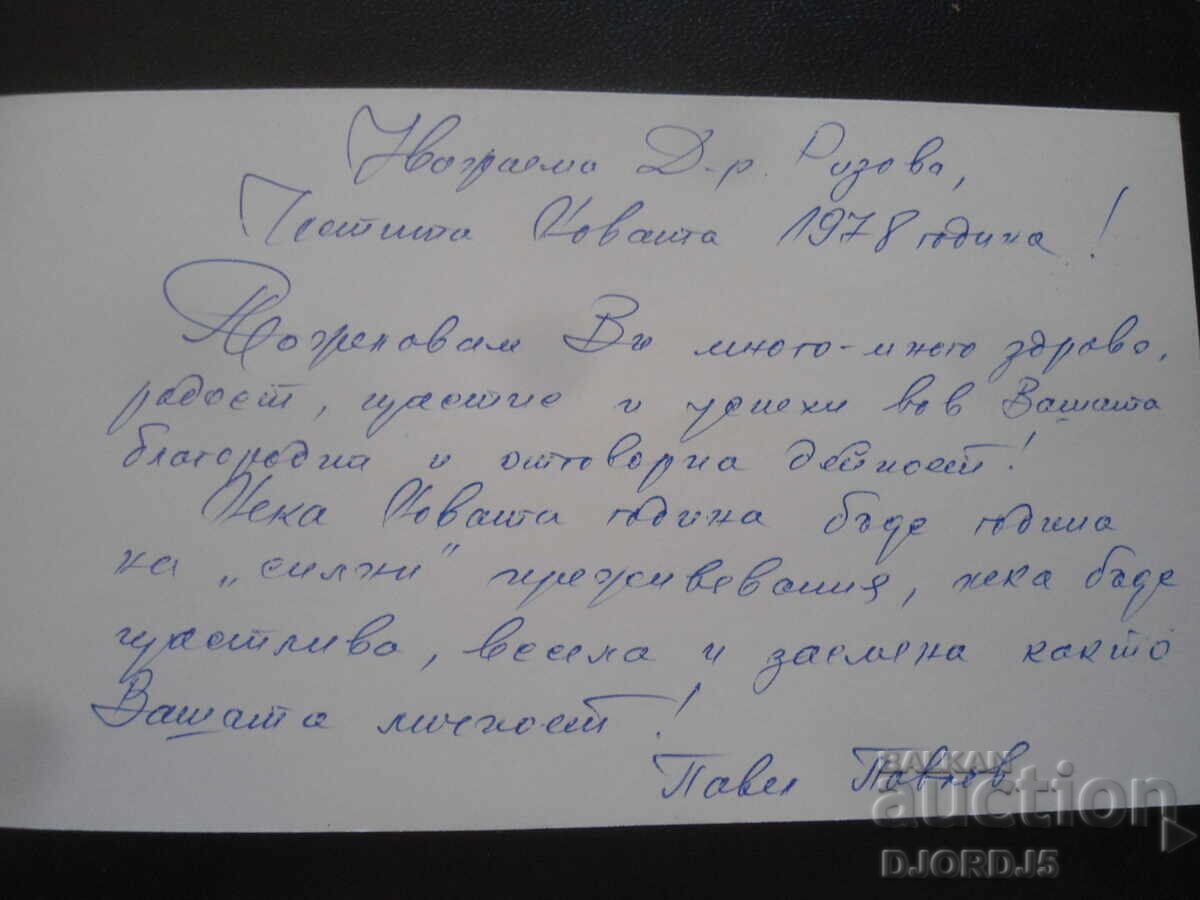 Уважаема Д-р. Ризова,
Честита Новата 1978 година!
Пожелавам Ви много-много здраве,
радост, щастие и успехи във Вашата
благородна и отговорна дейност!
Нека Новата година бъде година
на „силни" преживевания, нека бъде
щастлива, весела и засмяна както
Вашата личност!
Павел Павлов
BALKAN
auction
DJORDJ5